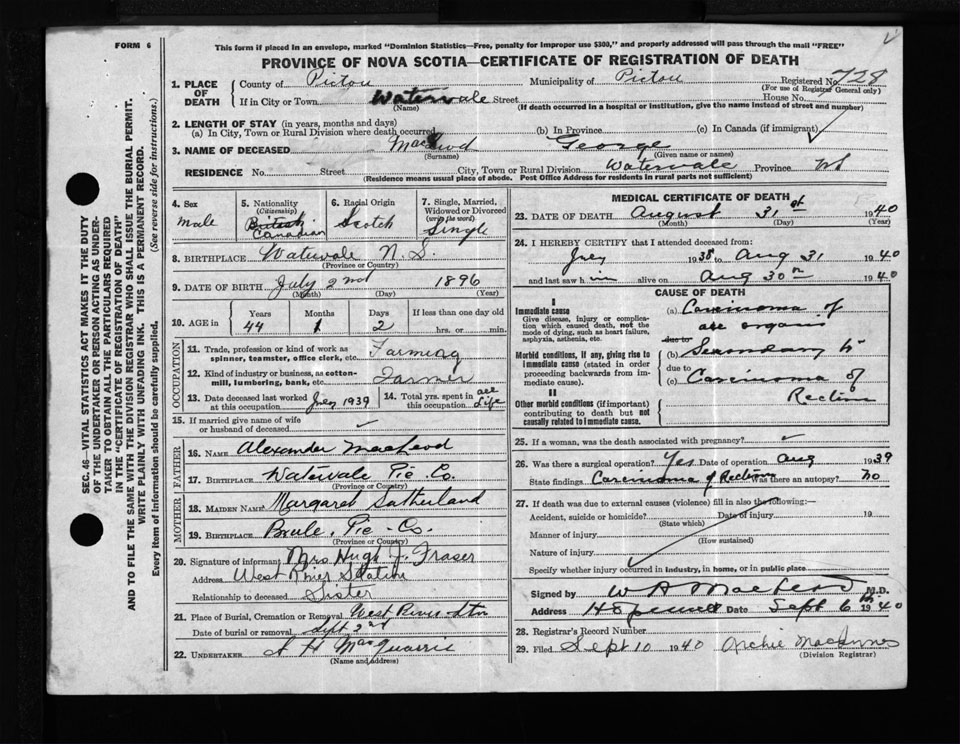 FORM 6
This form if placed in an envelope, marked "Dominion Statistics—Free, penalty for improper use $300," and properly addressed will pass through the mail "FREE"
PROVINCE OF NOVA SCOTIA—CERTIFICATE OF REGISTRATION OF DEATH
SEC. 46—VITAL STATISTICS ACT MAKES IT THE DUTY
OF THE UNDERTAKER OR PERSON ACTING AS UNDER-
TAKER TO OBTAIN ALL THE PARTICULARS REQUIRED
IN THE "CERTIFICATE OF REGISTRATION OF DEATH"
AND TO FILE THE SAME WITH THE DIVISION REGISTRAR WHO SHALL ISSUE THE BURIAL PERMIT.
WRITE PLAINLY WITH UNFADING INK. THIS IS A PERMANENT RECORD.
Every item of Information should be carefully supplied. (See reverse side for instructions.)
1. PLACE OF DEATH County of Pictou Municipality of Pictou Registered No. 728
(For use of Registrar General only)
If in City or Town Watervale Street House No.
(Name) (If death occurred in a hospital or institution, give the name instead of street and number)
2. LENGTH OF STAY (in years, months and days)
(a) In City, Town or Rural Division where death occurred (b) In Province (c) In Canada (if immigrant)
3. NAME OF DECEASED MacLeod George
(Surname) (Given name or names)
RESIDENCE No. Street City, Town or Rural Division Watervale Province NS
(Residence means usual place of abode. Post Office Address for residents in rural parts not sufficient)
4. Sex male
5. Nationality (Citizenship) British Canadian
6. Racial Origin Scotch
7. Single, Married, Widowed or Divorced (write the word) Single
8. BIRTHPLACE Watervale N.S.
(Province or Country)
9. DATE OF BIRTH July 2nd 1896
(Month) (Day) (Year)
10. AGE IN Years Months Days If less than one day old
44 1 2 hrs. or min.
OCCUPATION
11. Trade, profession or kind of work as spinner, teamster, office clerk, etc. Farming
12. Kind of industry or business, as cotton-mill, lumbering, bank, etc. Farmer
13. Date deceased last worked at this occupation July 1939
14. Total yrs. spent in this occupation all life
15. If married give name of wife or husband of deceased
FATHER
16. Name Alexander MacLeod
17. Birthplace Watervale Pic Co.
MOTHER
18. Maiden Name Margaret Sutherland
19. Birthplace Brule, Pic-Co.
(Province or Country)
20. Signature of informant Mrs Hugh J. Fraser
Address West River Station
Relationship to deceased Sister
21. Place of Burial, Cremation or Removal West River Stn
Date of burial or removal Sept 2nd
22. UNDERTAKER A H MacQuarrie
(Name and Address)
MEDICAL CERTIFICATE OF DEATH
23. DATE OF DEATH August 31st 1940
(Month) (Day) (Year)
24. I HEREBY CERTIFY that I attended deceased from:
July 1938 to Aug 31 1940
and last saw him alive on Aug 30 1940
CAUSE OF DEATH
I
Immediate cause
Give disease, injury or complication which caused death, not the mode of dying, such as heart failure, asphyxia, asthenia, etc.
(a) Carcinoma of
due to
Morbid conditions, if any, giving rise to immediate cause (stated in order proceeding backwards from immediate cause).
(b) Secondary to
due to
(c) Carcinoma of
Rectum
II
Other morbid conditions (if important) contributing to death but not causally related to immediate cause.
25. If a woman, was the death associated with pregnancy?
26. Was there a surgical operation? Yes Date of operation Aug 1939
State findings Carcinoma of Rectum Was there an autopsy? No
27. If death was due to external causes (violence) fill in also the following:—
Accident, suicide or homicide? Date of injury 19
(State which)
Manner of injury
(How sustained)
Nature of injury
Specify whether injury occurred in industry, in home, or in public place
Signed by W A MacLeod M.D.
Address Hopewell Date Sept 6th 1940
28. Registrar's Record Number
29. Filed Sept 10 1940 Archie MacInnes
(Division Registrar)